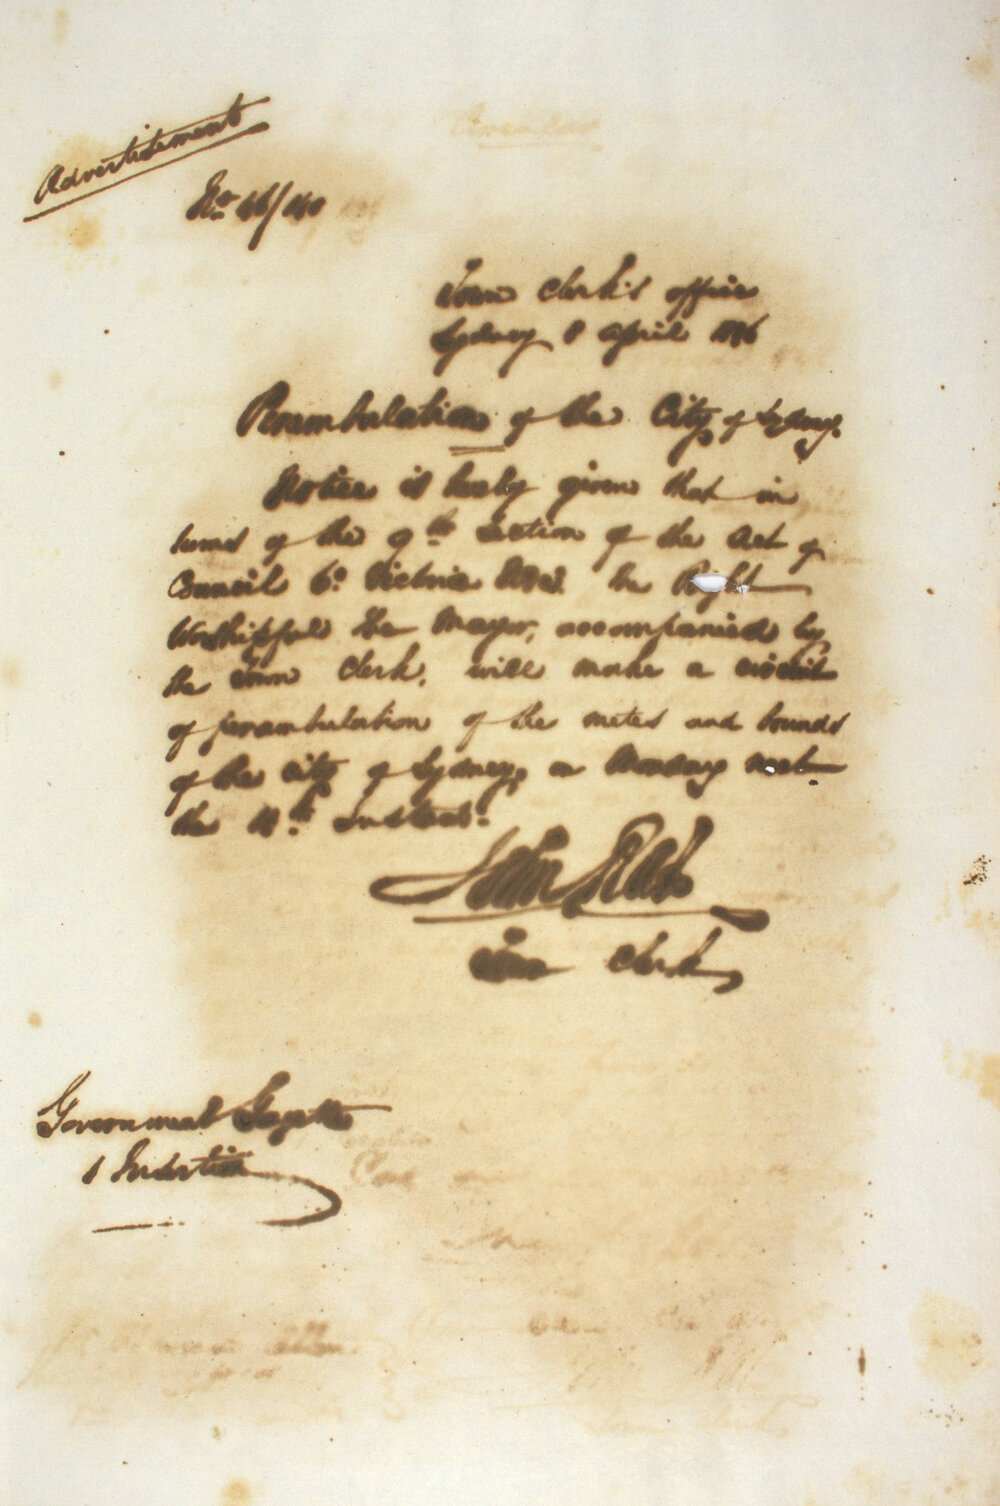 Advertisement
No. 46/40
Town Clerk's Office
Sydney 8 April 1846
Perambulation of the City of Sydney.
Notice is hereby given that in
terms of the 9th Section of the Act of
Council 6o. Victoria the Right
Worshipful the Mayor, accompanied by
the Town Clerk, will make a circuit
of perambulation of the metes and bounds
of the City of Sydney, on Monday next
the Instant.
John Rae
Town Clerk
Government Gazette
1 Insertion